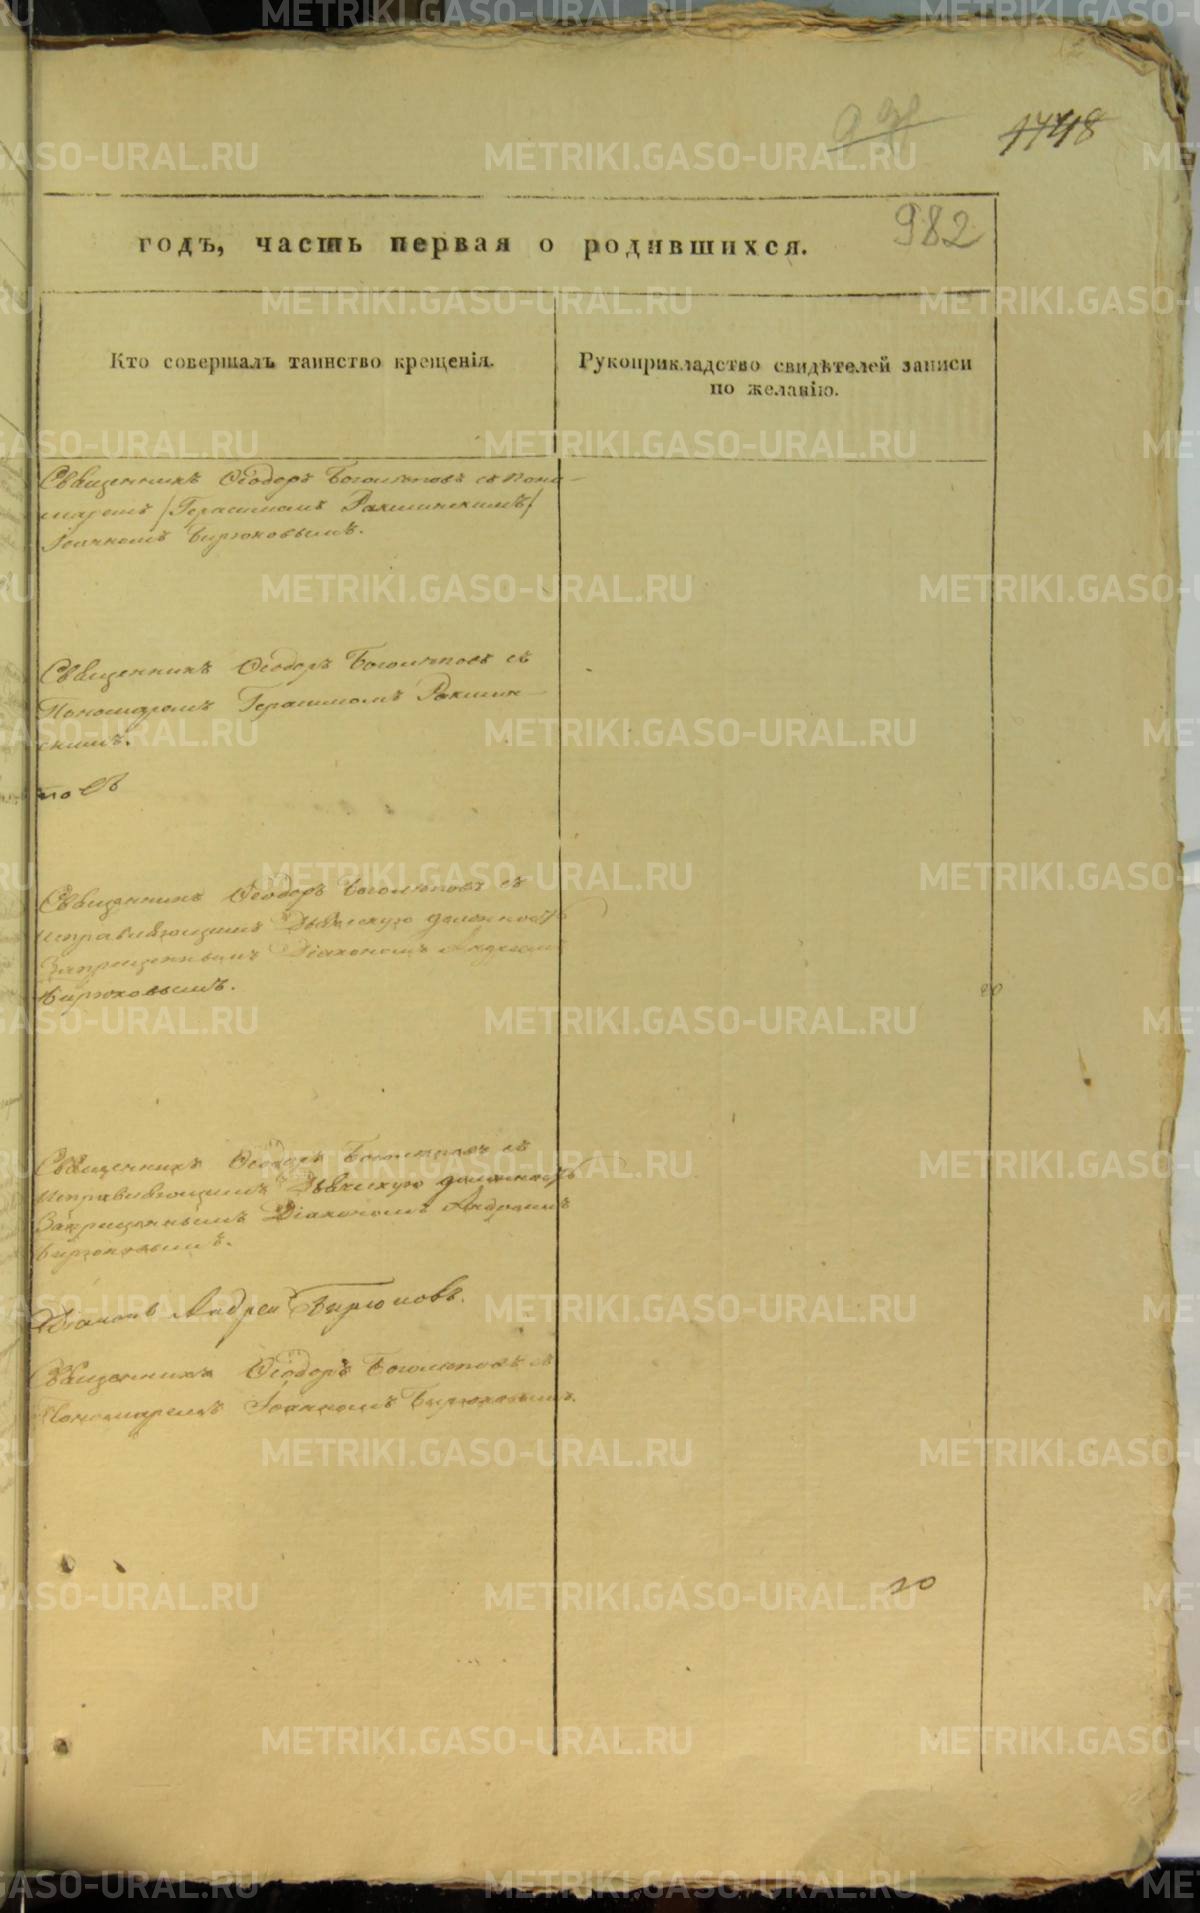 1748
982
годъ, часть первая о родившихся.
Кто совершалъ таинство крещенія.
Рукоприкладство свидѣтелей записи
по желанію.
Священникъ Ѳеодоръ Боголюповъ съ Поно-
маремъ /Герасимомъ Ракшинскимъ/
Іоанномъ Бирюковымъ.
Священникъ Ѳеодоръ Боголюповъ съ
Пономаремъ Герасимомъ Ракшин-
скимъ.
Священникъ Ѳеодоръ Боголюповъ съ
Исправляющимъ Дьяческую должность
Запрещеннымъ Діакономъ Андреемъ
Бирюковымъ.
Священникъ Ѳеодоръ Боголюповъ съ
Исправляющимъ Дьяческую должность
Запрещеннымъ Діакономъ Андреемъ
Бирюковымъ.
Діаконъ Андрей Бирюковъ.
Священникъ Ѳеодоръ Боголюповъ съ
Пономаремъ Іоанномъ Бирюковымъ.
METRIKI.GASO-URAL.RU